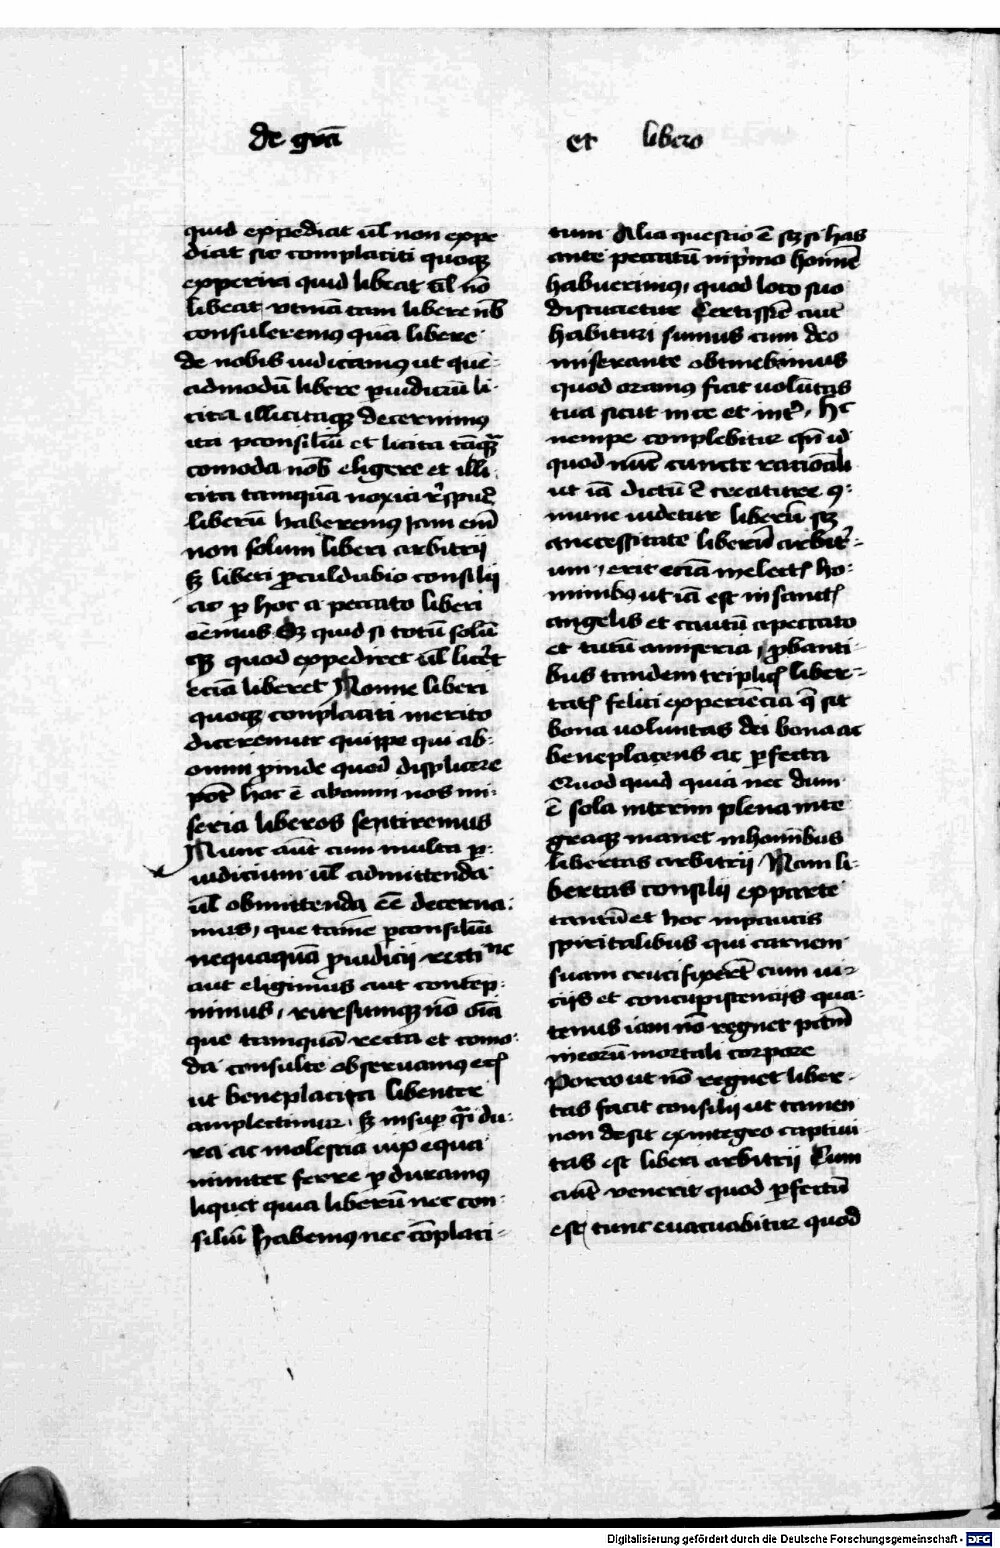 de grā et libero
quid expediat ūl non expe
diat sic complaciti quoqꝫ
experiri quid libeat ūl nō
libeat vtinā tam libere nob̄
consuleremꝰ quā libere
de nobis iudicamꝰ ut que-
admodū libere ꝓ iudiciū li-
cita illicitaqꝫ decernimꝰ
ita ꝑ consiliū et licita tāqꝫ
comoda nob̄ eligere et illi-
cita tamquā noxia rꝰspuē
liberū haberemꝰ Iam em̄
non solum liberi arbitrii
sꝫ liberi ꝓculdubio consilii
ac ꝑ hoc a peccato liberi
eēmus Sꝫ quid si totū solū
qꝫ quod expediret ūl licet
eciā liberet Nonne liberi
quoqꝫ conplaciti merito
diceremur quippe qui ab-
omni ꝓinde quod displicere
pōt hoc ē ab omni nos mi-
seria liberos sentiremus
Nunc aūt cum multa ꝑ-
iudicium ūl admittenda
ūl obmittenda eē decerna-
mus, que tamē ꝑ consiliū
nequaquā ꝓ iudicii recti ne
aut eligimus aut contēp-
nimus, rursumqꝫ nō oīa
que tamquā recta et como-
da consulte obseruamꝰ ec̄
ut beneplacita libenter
amplectimur, sꝫ insuꝑ q̄i du-
ra ac molesta vix equa
nimiter ferre ꝑduramꝰ
liquet quia liberū nec con-
siliū habemꝰ nec cōplaci-
tum Alia questio ē sꝫ si has
ante peccatū in pimo homīe
habuerimꝰ, quod loco suo
discucietur Certissiē aut̄
habituri sumus cum deo
miserante obtinebimus
quod oramꝰ fiat uolūtas
tua sicut in ce et in tr̄, Hc
nempe conplebitur qn̄ id
quod nūc cuncte racionali
ut iā dictū ē creature ꝯ-
mune uidetur liberū sꝫ
a necessitate liberū arbitr̄-
um, erit eciā in electꝭ ho-
minibꝰ ut iā est in sanctꝭ
angelis et cautū a peccato
et tutū a miseria, ꝓbanti-
bus tandem triplicꝭ liber-
tatꝭ felici experiēcia q̄ sit
bona uoluntas dei bona ac
beneplacens ac ꝑfecta
Quod quid quia nec dum
ē sola interim plena inte
graqꝫ manet in hominibus
libertas arbitrii Nam li-
bertas consilii ex parte
tantū et hoc in paucis
spiritalibus qui carnem
suam crucifixerēt cum ui-
ciis et concupiscenciis qua-
tenus iam nō regnet pctm̄
in eorū mortali corpore
Porro ut nō regnet liber-
tas facit consilii ut tamen
non desit ex integro captiui
tas est liberi arbitrii Cum
aūt venerit quod ꝑfectū
est, tunc euacuabitur quod
Digitalisierung gefördert durch die Deutsche Forschungsgemeinschaft - DFG